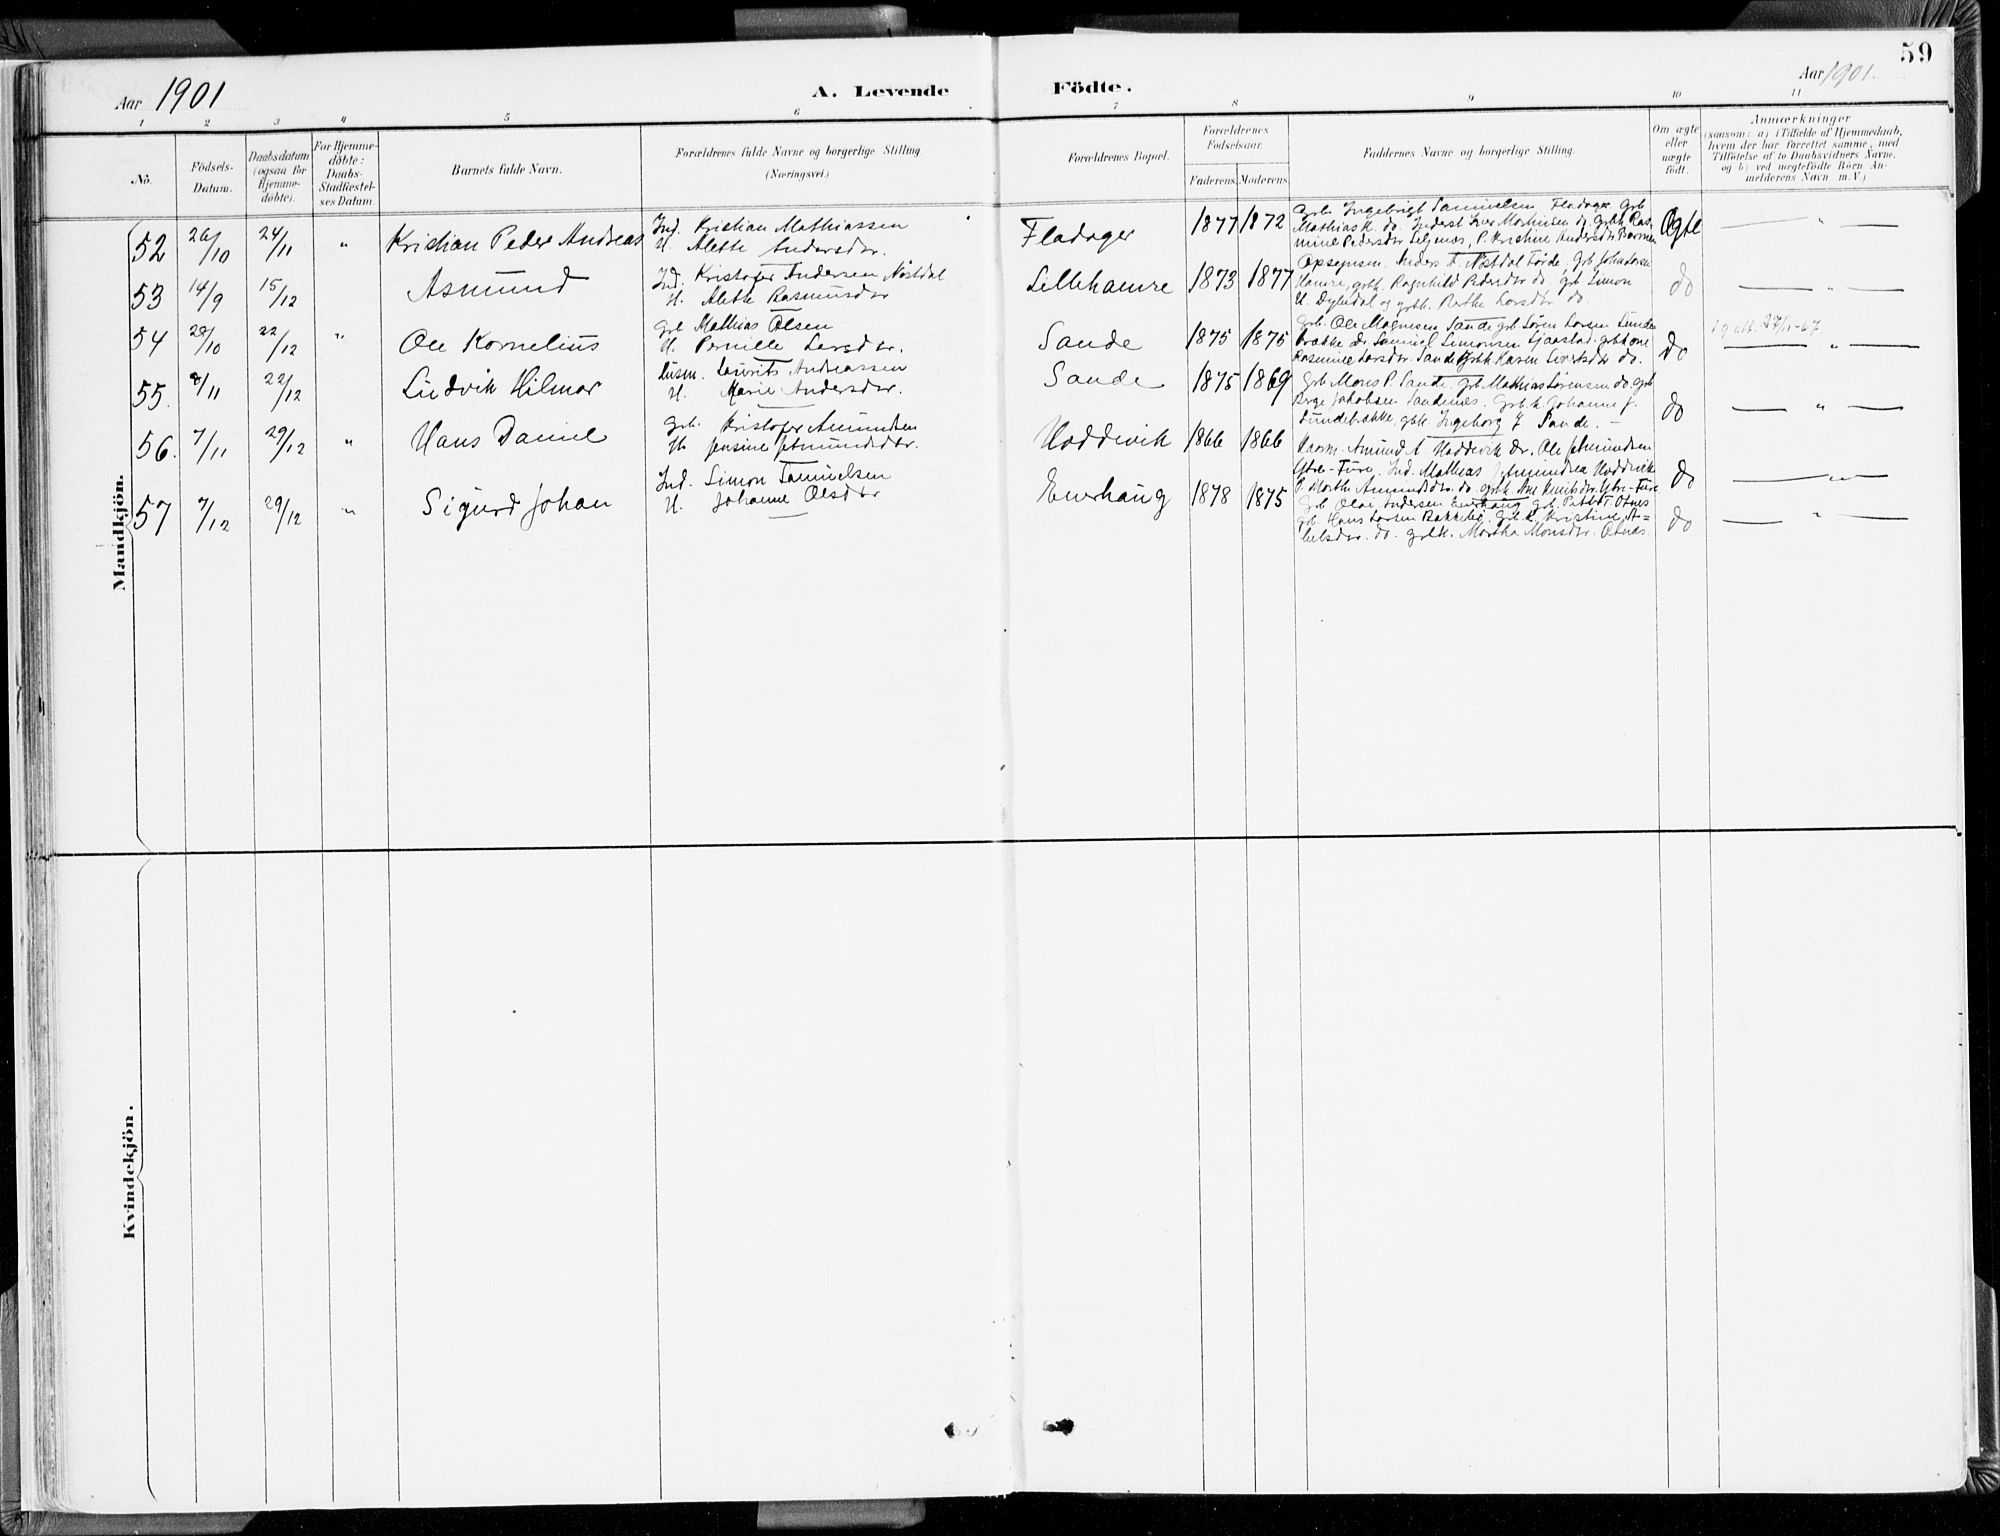 59
Aar 1901
A. Levende Födte.
Aar 1901.
1 2 3 4 5 6 7 8 9 10 11
No.
Födsels-Datum.
Daabsdatum (ogsaa for Hjemme-döbte).
For Hjemme-döbte: Daabs-Stadfæstel-ses Datum.
Barnets fulde Navn.
Forældrenes fulde Navne og borgerlige Stilling.
(Næringsvei.)
Forældrenes Bopæl.
Forældrenes Födselsaar.
Faderens. Moderens.
Faddernes Navne og borgerlige Stilling.
Om ægte eller uægte födt.
Anmærkninger
(saasom: a) i Tilfælde af Hjemmedaab,
hvem der har forrettet samme, med
Tilföielse af to Daabsvidners Navne,
og b) ved uægtefödte Börn An-
melderens Navn m. V.)
Mandkjön.
52 26/10 24/11 " Kristian Peder Andreas
Ind. Kristian Mathiassen
H. Alette Andersdtr.
Fladager 1877 1872
Grb. Ingebrigt Samuelsen Fladager grb
Mathias K. do. Inderst Iver
mine Pedersdtr Seljenes, P. Kristine Andersdtr Barmen
Ægte — " —
53 14/9 15/12 Asmund
Ind. Kristofer Andersen Nöstdal
H. Alette Rasmusdtr
Lillehamre 1873 1877
Opsynsm. Anders A. Nöstdal Förde, Grb Johan Larsen
Hamre, grbk. Ragnhild Pedersdtr do. grb Simon
H. Dybedal og grbk. Berthe Larsdtr do.
do — " —
54 20/10 22/12 " Ole Kornelius
Grb Mathias Olsen
H. Pernille Larsdtr.
Sande 1875 1875
Grb. Ole Magnesen Sande grb Sören Larsen Lunde
brække Dr. Samuel Simonsen
Rasmine Larsdtr. Sande grbk Karen Sivertsdtr do.
do 27/11-67 — " —
55. 8/11 22/12 Ludvik Hilmar
Husm. Laurits Andreassen
H. Marie Andersdtr.
Sande 1875 1869
Grb Mons P. Sande. grb Mathias Sörensen do. grb
Börge Jakobsen Sandenes. Grb.k Johanne J.
Lundebrække, gbk. Ingeborg J Sande. —
do — " —
56. 7/11 29/12 " Hans Daniel
grb. Kristofer Amundsen
H. Jensine Jetmundsdtr.
Hoddevik 1866 1866
Kaarm. Amund A. Hoddevik Dr. Ole Jetmundsen
Ytre-Fure. Ind. Mathias Jetmundsen Hoddevik
P. Marthe Amundsdtr. do grbk Ane Knutsdtr. Ytre-Fure
do — " —
57 7/12 29/12 " Sigurd Johan
Ind. Simon Samuelsen
H. Johanne Olsdtr
Enerhaug 1878 1875
Grb. Olai Andersen Enerhaug grb. Peder T. Otnes
grb. Hans Larsen Bakkebö. Grb.k. Kristine A=
belsdtr. do. grbk. Martha Monsdtr. Otnes.
do — " —
Kvindekjön.